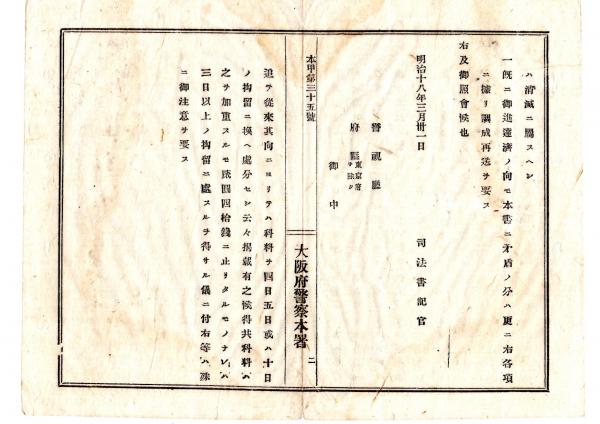 ハ消滅ニ屬スヘシ
一既ニ御進達濟ノ向モ本書ニ矛盾ノ分ハ更ニ右各項
ニ據リ調成再送ヲ要ス
右及御照會候也
明治十八年三月卅一日
司法書記官
警視廳
府縣東京府ヲ除ク
御中
本甲第三十五號
大阪府警察本署
二
追テ從來其向ニヨリテハ科料ヲ四日五日或ハ十日
ノ拘留ニ換ヘ處分セシ云々揭載有之候得共科料ハ
之ヲ加重スルモ貳圓四拾錢ニ止リタルモノナレハ
三日以上ノ拘留ニ處スルヲ得サル儀ニ付右等ハ殊
ニ御注意ヲ要ス